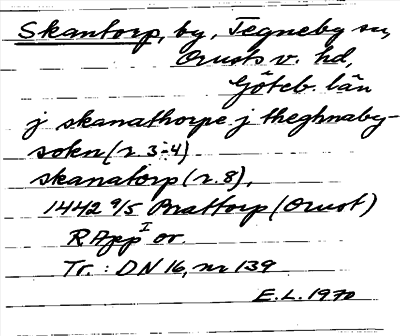 Skantorp, by, Tegneby sn,
Orusts v. hd,
Göteb. län
j skanathorpe j theghnaby-
sokn (r. 3-4)
skanatorp (r. 8),
1442 9/5 Brattorp (Orust)
RApp I or.
Tr.: DN 16, nr 139
E.L. 1970